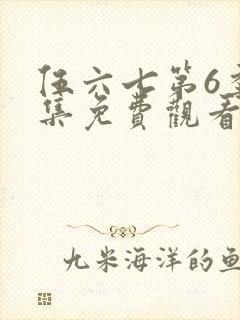 伍六七第6季
集免費觀看
九米海洋的魚